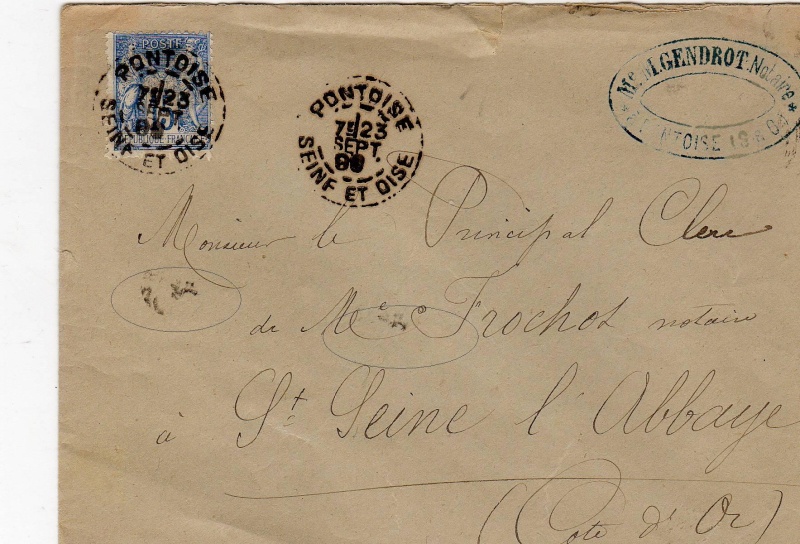 POSTE
15
REPUBLIQUE FRANCAISE
PONTOISE
7E 23
SEPT
SEINE ET OISE
PONTOISE
7E 23
SEPT
80
SEINE ET OISE
M. GENDROT, Notaire
PONTOISE
Monsieur le Principal Clerc
de Me Frochot notaire
à St Seine l'Abbaye
(Cote d'Or)